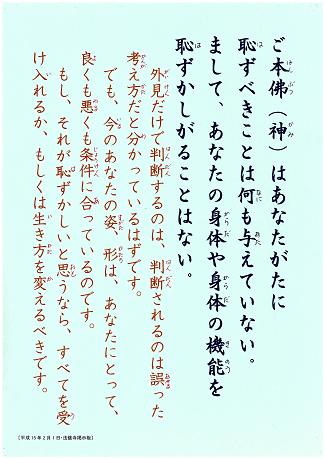 ご本佛（神）はあなたがたに
恥ずべきことは何も与えていない。
まして、あなたの身体や身体の機能を
恥ずかしがることはない。
外見だけで判断するのは、判断されるのは誤った
考え方だと分かっているはずです。
でも、今のあなたの姿、形は、あなたにとって、
良くも悪くも条件に合っているのです。
もし、それが恥ずかしいと思うなら、すべてを受
け入れるか、もしくは生き方を変えるべきです。
［平成15年2月1日・法徳寺掲示板］